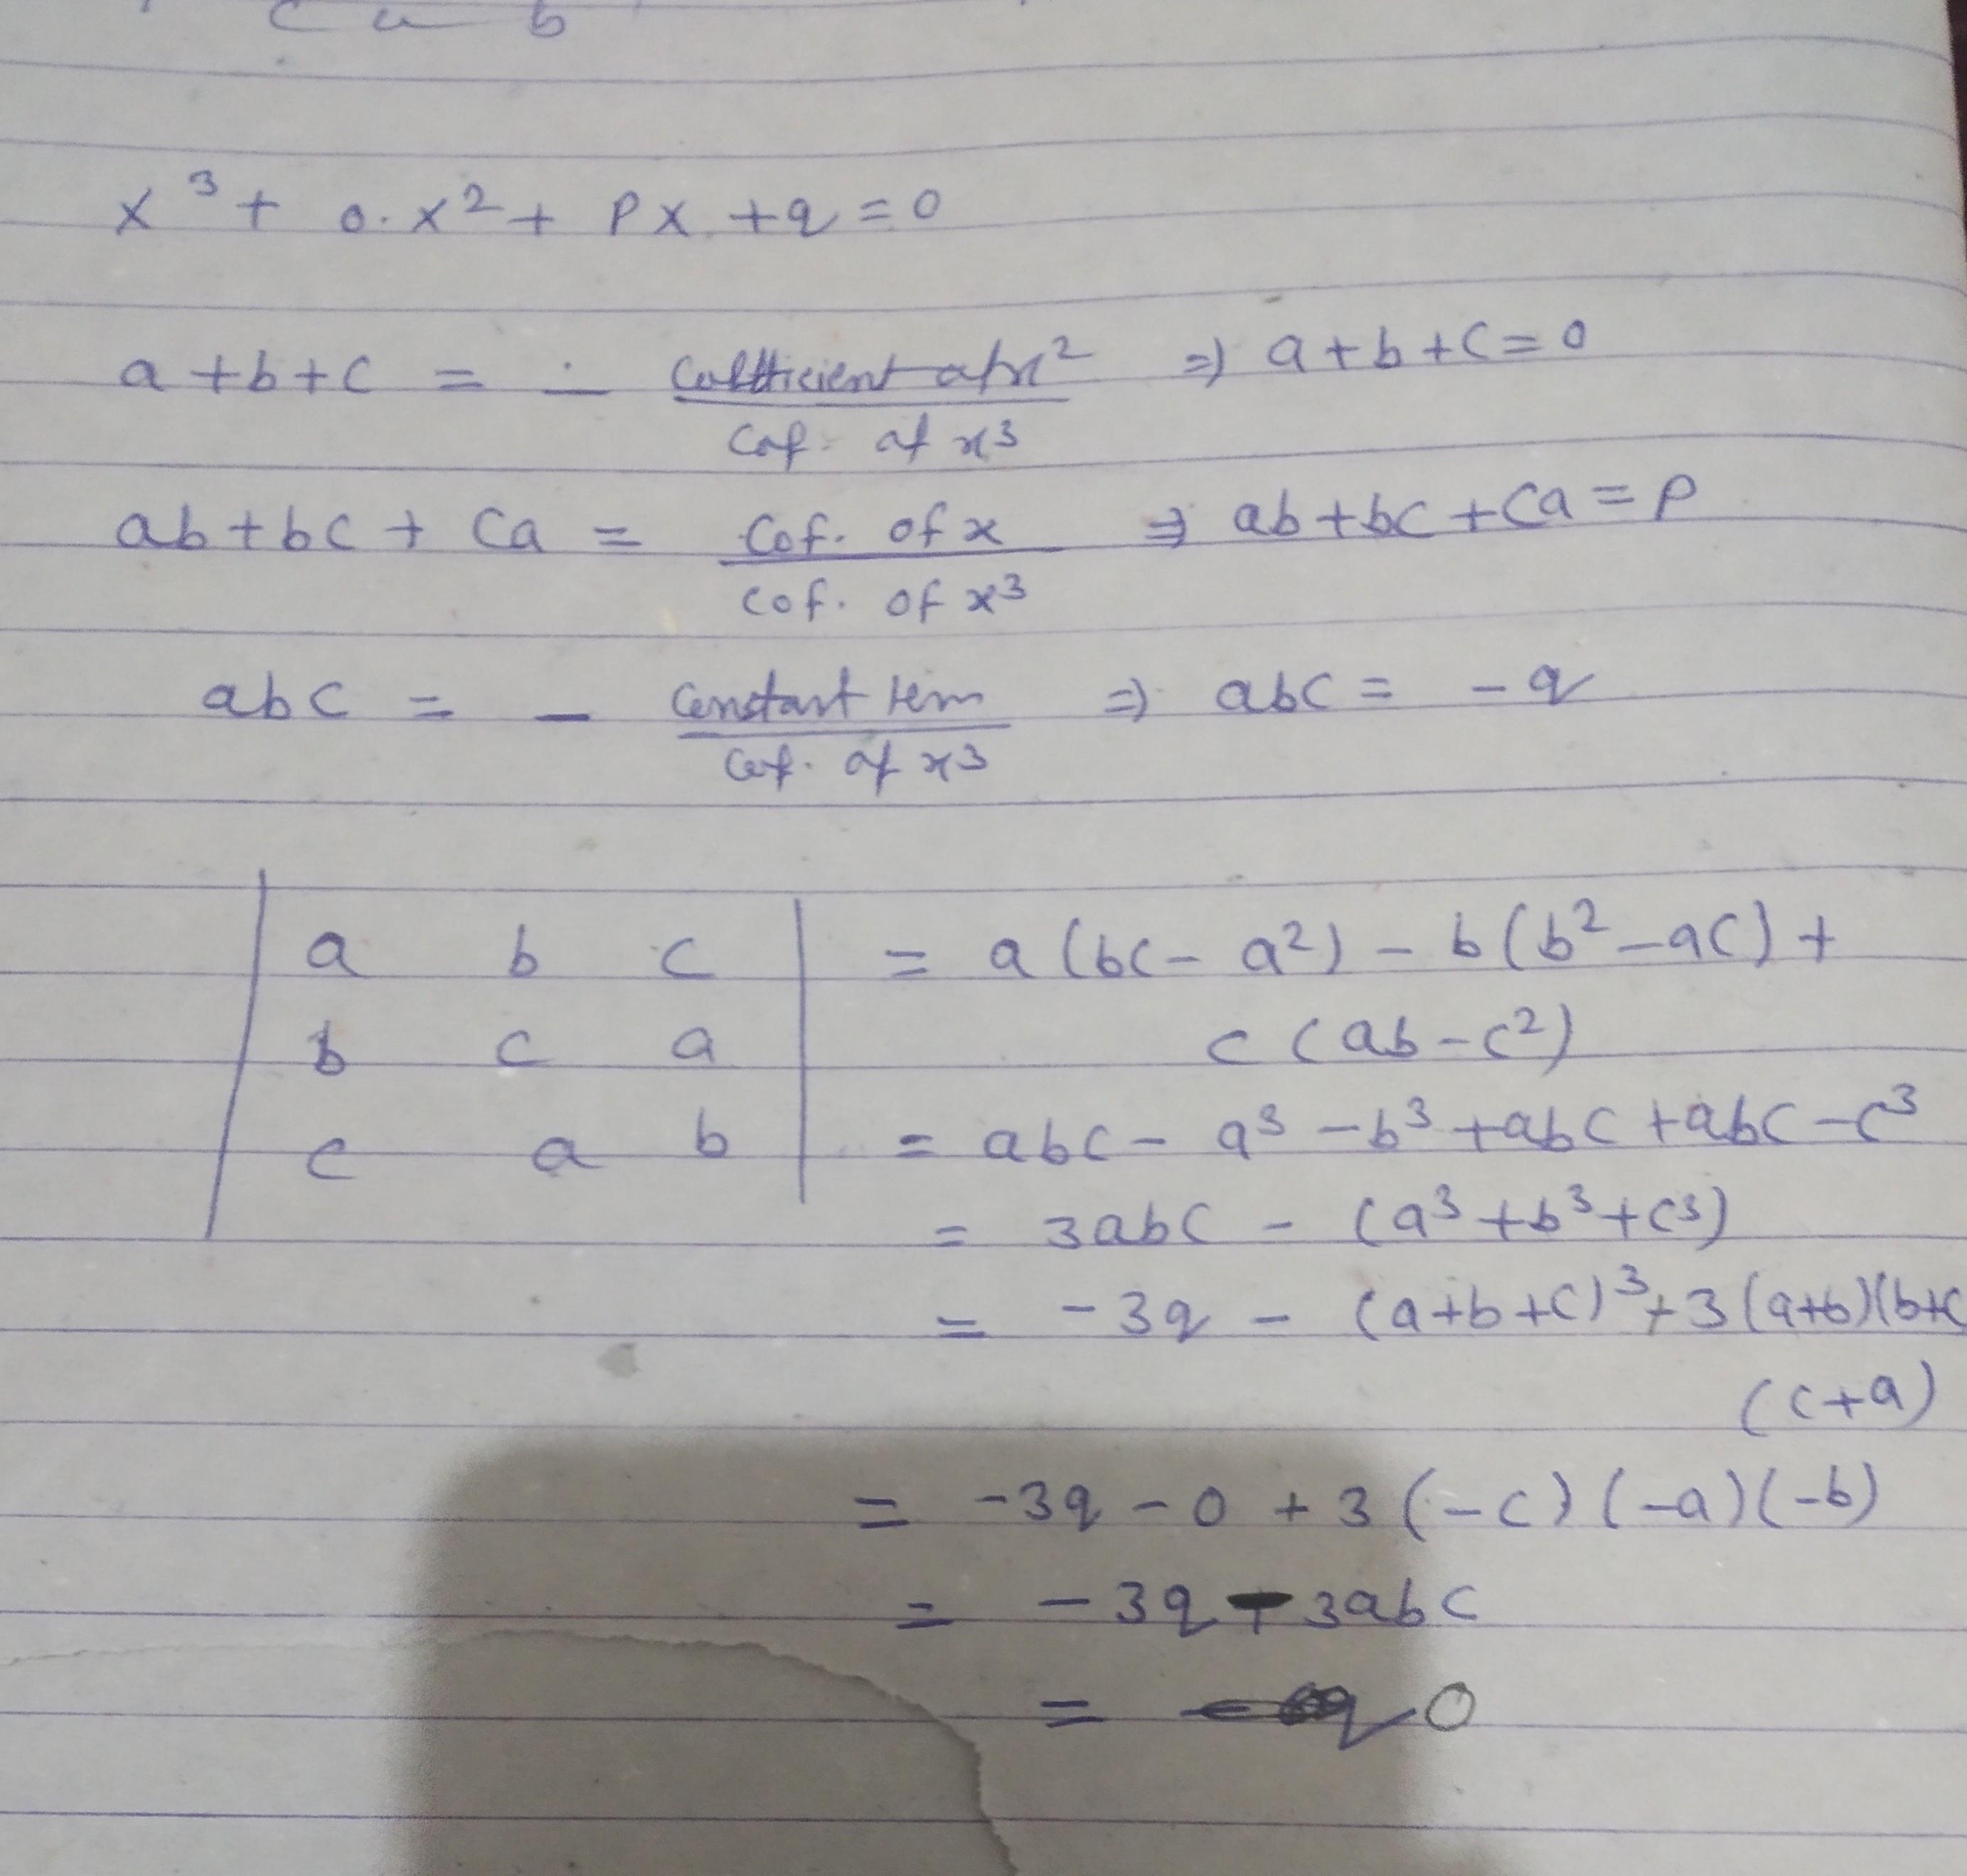 c a b
x³ + 0.x² + Px + q = 0
a + b + c = - Coefficient of x² / Cof. of x³ ⇒ a + b + c = 0
ab + bc + ca = Cof. of x / cof. of x³ ⇒ ab + bc + ca = P
abc = - Constant term / Cof. of x³ ⇒ abc = - q
| a b c | = a (bc - a²) - b (b² - ac) +
| b c a | c (ab - c²)
| c a b | = abc - a³ - b³ + abc + abc - c³
= 3abc - (a³ + b³ + c³)
= - 3q - (a + b + c)³ + 3 (a+b)(b+c
(c+a)
= -3q - 0 + 3 (-c) (-a) (-b)
= - 3q - 3abc
= 0